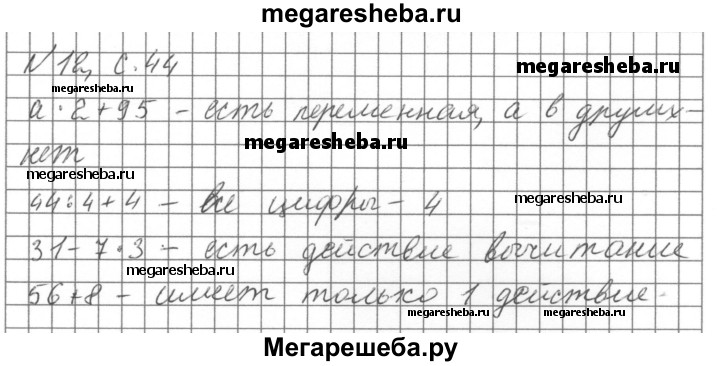 megaresheba.ru
№12, с.44
megaresheba.ru
megaresheba.ru
а·2+95 – есть переменная, а в других –
megaresheba.ru
нет
megaresheba.ru
44:4+4 – все цифры – 4
megaresheba.ru
31–7·3 – есть действие вычитание
megaresheba.ru
56+8 – имеет только 1 действие.
megaresheba.ru
megaresheba.ru
Мегарешеба.ру